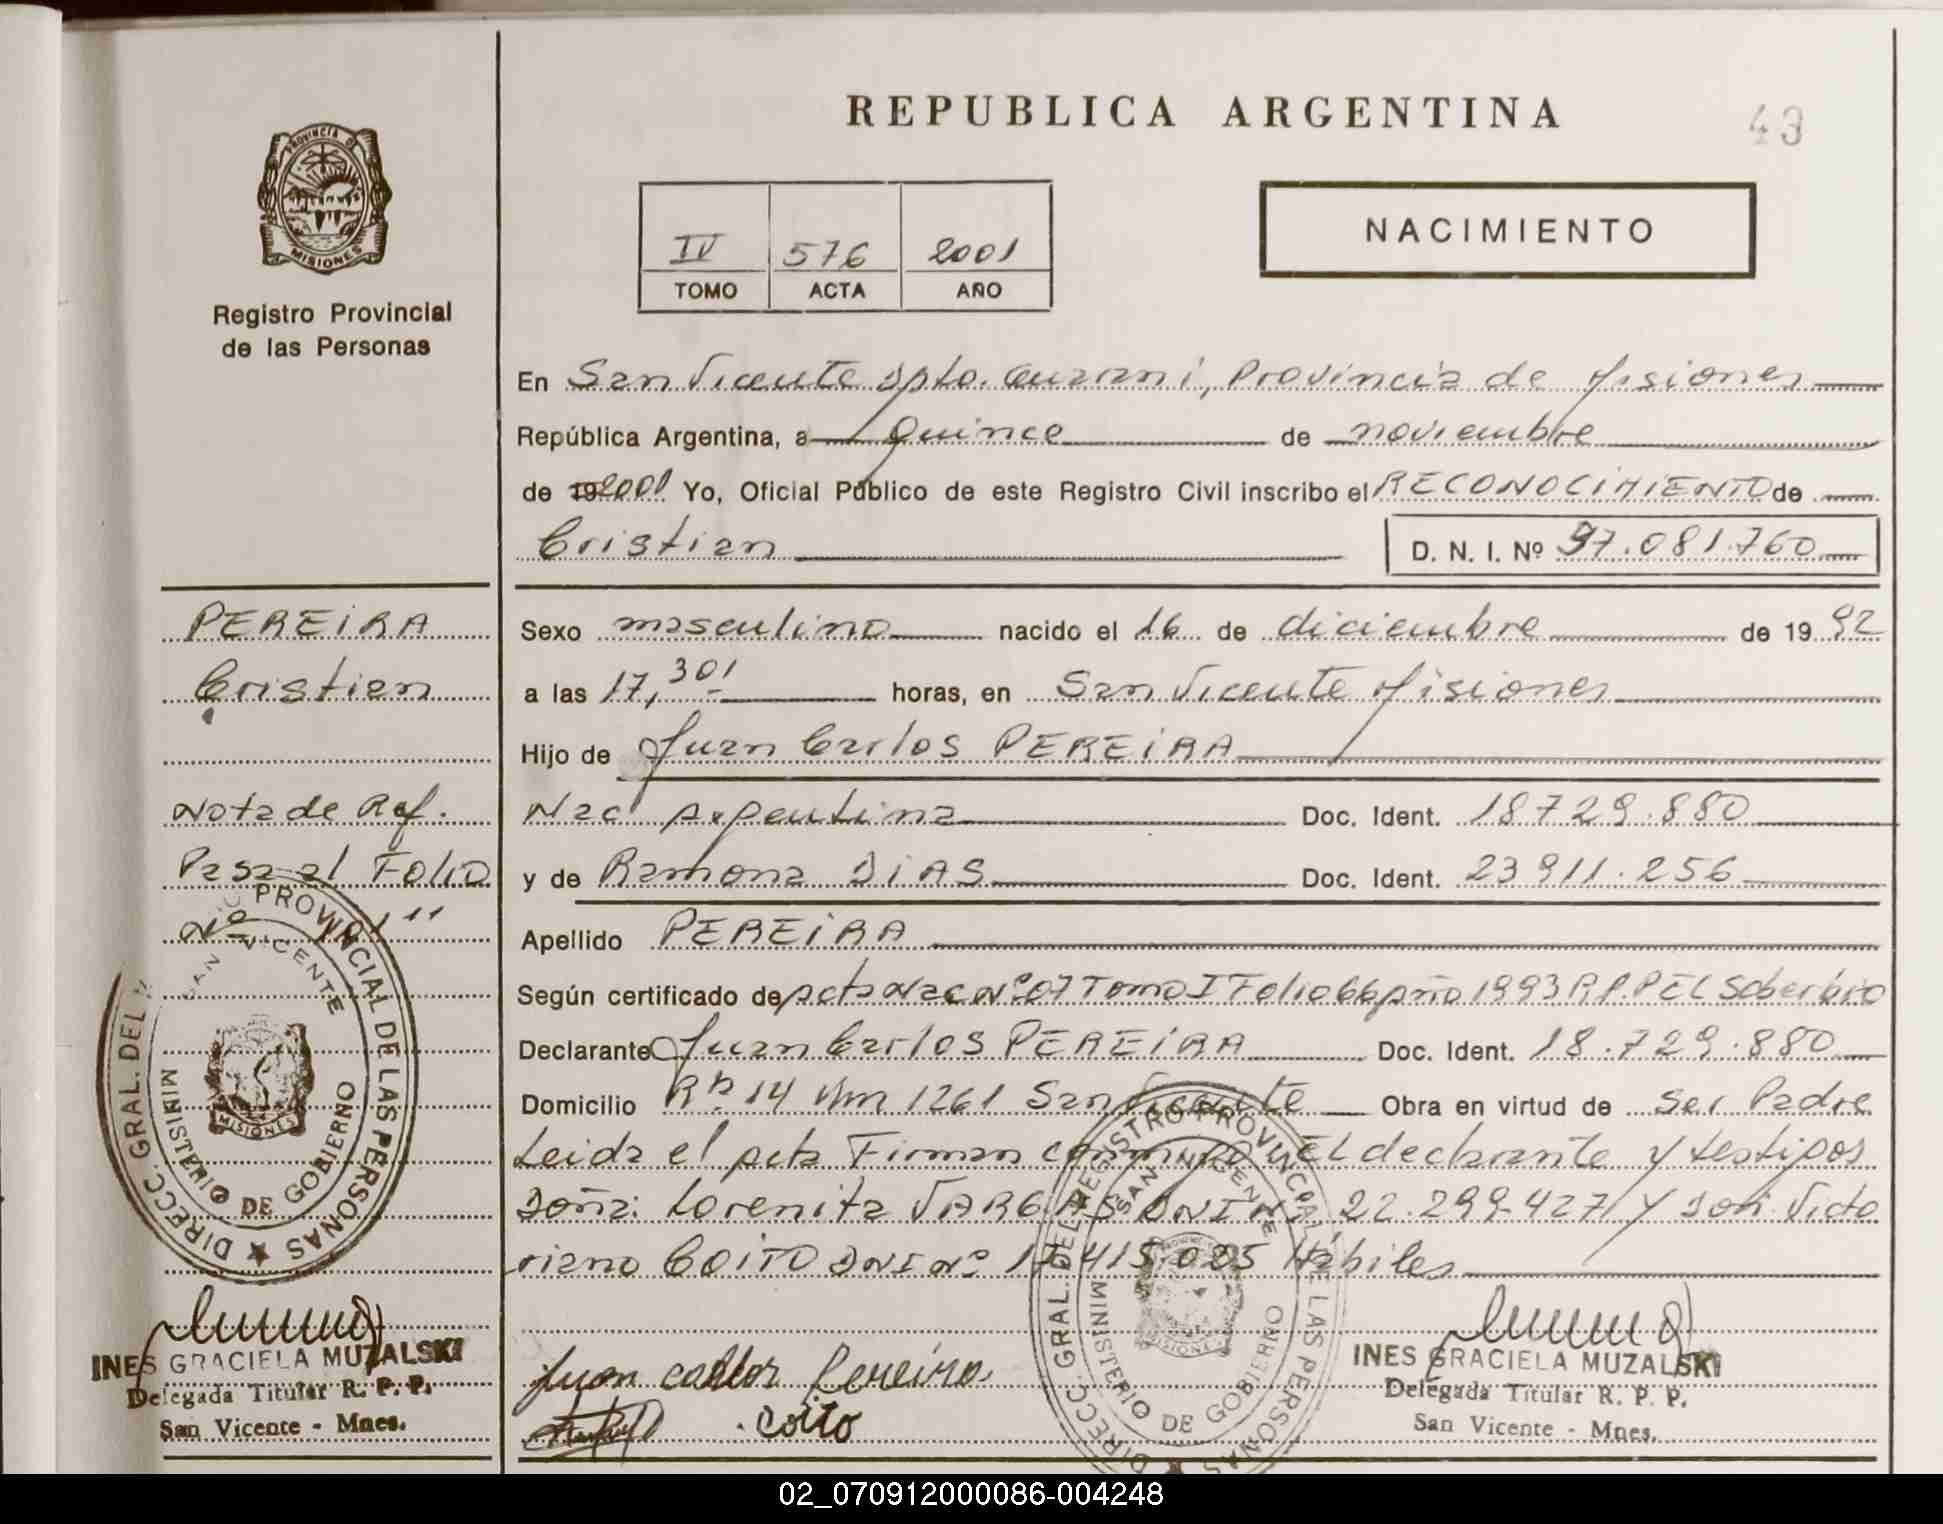 REPUBLICA ARGENTINA
43
PROVINCIA DE
MISIONES
Registro Provincial
de las Personas
IV 576 2001
TOMO ACTA AÑO
NACIMIENTO
En San Vicente Dpto. Guarani, Provincia de Misiones
República Argentina, a Quince de noviembre
de 19 2001 Yo, Oficial Público de este Registro Civil inscribo el RECONOCIMIENTO de
Cristian D. N. I. Nº 37.081.760
PEREIRA
Cristian
Nota de Ref.
Pasa al Folio
Nº
Sexo masculino nacido el 16 de diciembre de 19 92
a las 17,30' horas, en San Vicente Misiones
Hijo de Juan Carlos PEREIRA
Nac Argentina Doc. Ident. 18729.880
y de Ramona DIAS Doc. Ident. 23911.256
Apellido PEREIRA
Según certificado de Acta Nac Nº 07 Tomo I Folio 66 Año 1993 R.P.P EL Soberbio
Declarante Juan Carlos PEREIRA Doc. Ident. 18.729.880
Domicilio Rn 14 Km 1261 San Vicente Obra en virtud de ser Padre
Leida el Acta Firman conmigo EL declarante y testigos
Doña: Lorenita VARGAS DNI Nº 22.299.427 Y Don Victo
riano COITO DNI Nº 17.415.025 Hábiles
DIRECC. GRAL. DEL PROVINCIAL DE LAS PERSONAS
SAN VICENTE
MISIONES
MINISTERIO DE GOBIERNO
DIRECC. GRAL. DEL REGISTRO PROVINCIAL DE LAS PERSONAS
SAN VICENTE
MISIONES
MINISTERIO DE GOBIERNO
INES GRACIELA MUZALSKI
Delegada Titular R. P. P.
San Vicente - Mnes.
Juan Carlos Pereira
Coito
INES GRACIELA MUZALSKI
Delegada Titular R. P. P.
San Vicente - Mnes.
02_070912000086-004248